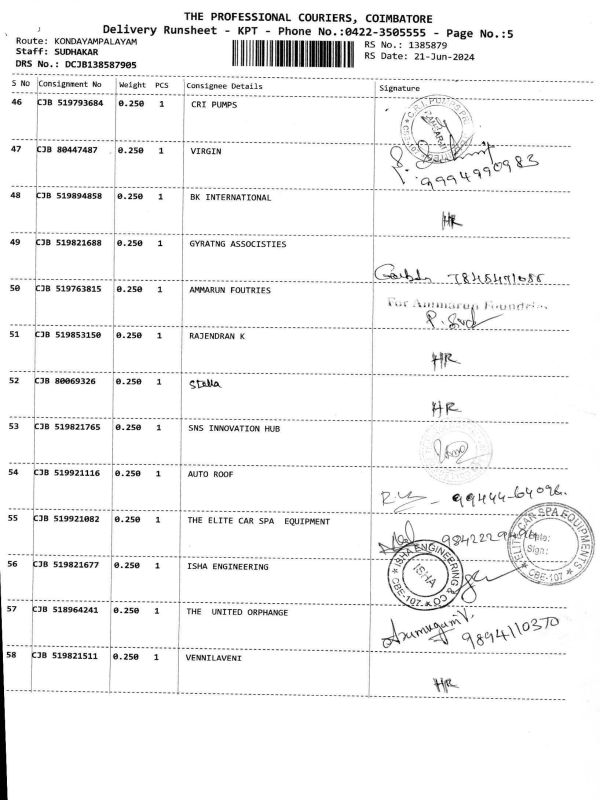 THE PROFESSIONAL COURIERS, COIMBATORE
Delivery Runsheet - KPT - Phone No.:0422-3505555 - Page No.:5
Route: KONDAYAMPALAYAM
Staff: SUDHAKAR
DRS No.: DCJB138587905
RS No.: 1385879
RS Date: 21-Jun-2024
S No Consignment No Weight PCS Consignee Details Signature
46 CJB 519793684 0.250 1 CRI PUMPS
47 CJB 80447487 0.250 1 VIRGIN
9994990983
48 CJB 519894858 0.250 1 BK INTERNATIONAL
HR
49 CJB 519821688 0.250 1 GYRATNG ASSOCISTIES
50 CJB 519763815 0.250 1 AMMARUN FOUTRIES
For Ammarun Foundries
51 CJB 519853150 0.250 1 RAJENDRAN K
HR
52 CJB 80069326 0.250 1 Stella
HR
53 CJB 519821765 0.250 1 SNS INNOVATION HUB
54 CJB 519921116 0.250 1 AUTO ROOF
99444-64096.
55 CJB 519921082 0.250 1 THE ELITE CAR SPA EQUIPMENT
ELITE CAR SPA EQUIPMENTS
Date:
Sign:
CBE-107
56 CJB 519821677 0.250 1 ISHA ENGINEERING
ISHA ENGINEERING & CO
ISHA
CBE-107
57 CJB 518964241 0.250 1 THE UNITED ORPHANGE
Arumugam V.
9894110370
58 CJB 519821511 0.250 1 VENNILAVENI
HR